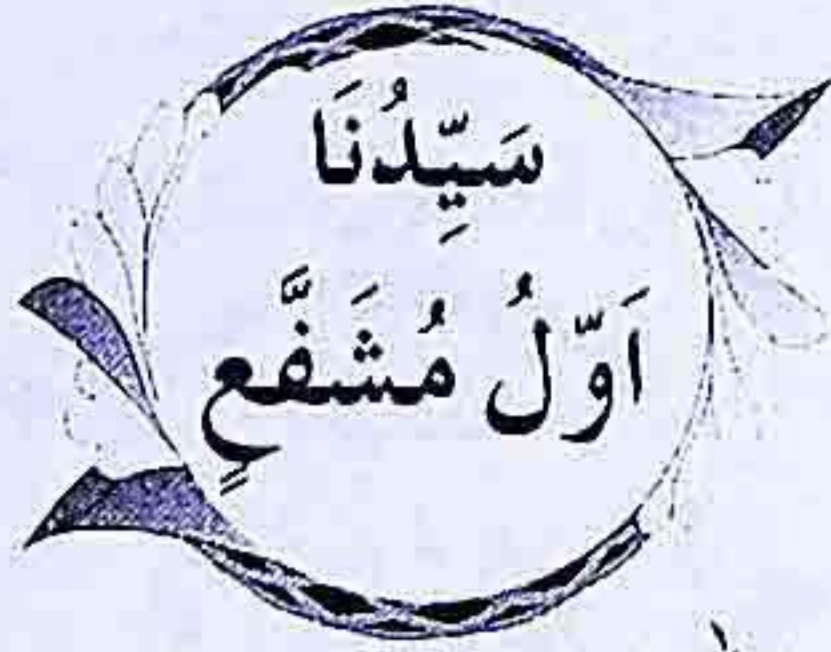 سَيِّدُنَا
اَوّلُ مُشَفَّعٍ